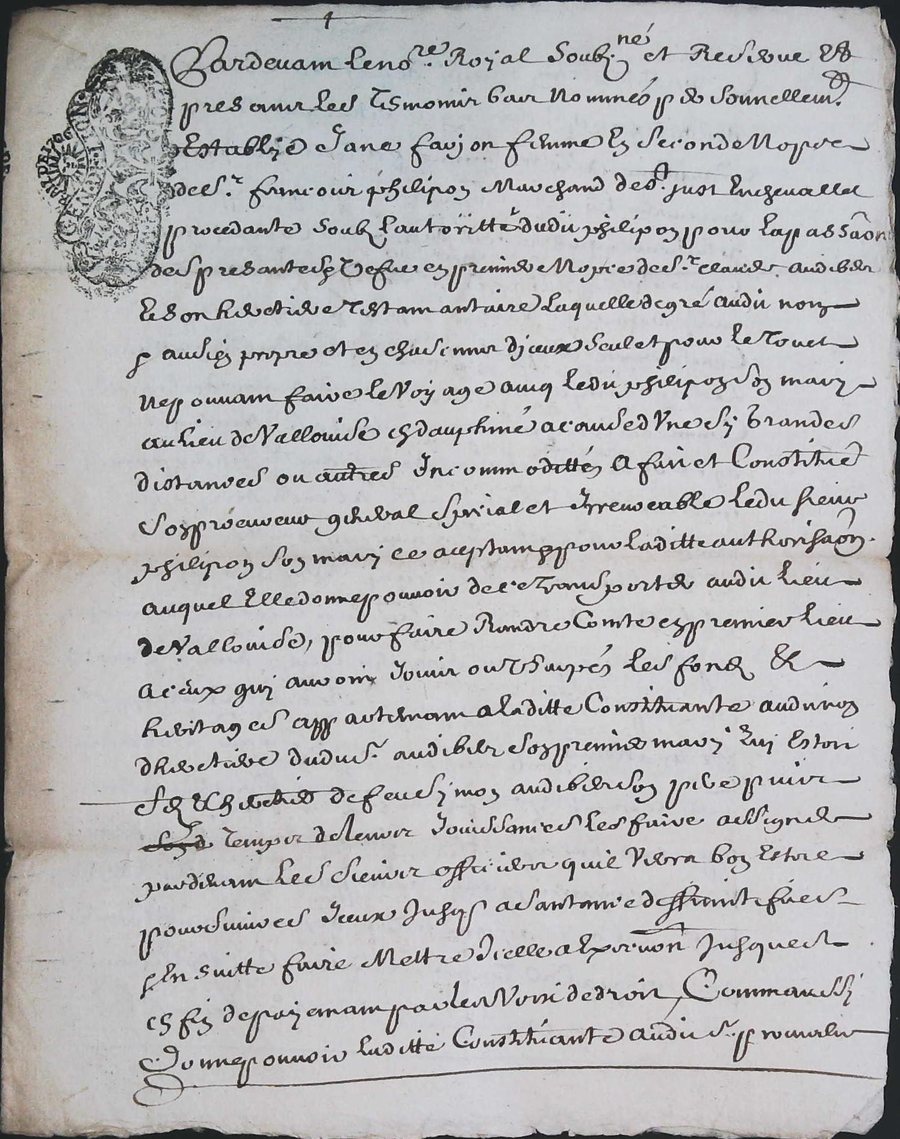 Pardevam le no.re Royal Soubz.né et Reserve &
presams les Tesmoins bas Nommés personnellem.t
Establye Jane fayon femme En seconde Nopce
de S.r francois philipon Marchand de S.t Just Enchevallet
procedante Soubz lautoritté dudit philipon pour la passaon
des presantes Vefve en premiere Nopce de S.r claude audiber
Et son heretiere Testamantaire Laquelle de gré audit nom
au sien propre et en chascun diceux seul et pour le Tout
Ne pouvam faire le Voyage avec ledit philipon son mary
au Lieu de Vallouise en dauphiné a cause dUne sy Grandes
distances ou autres Incommodittés A fait et Constitué
Son procureur general Special et Irrevocable ledit sieur
philipon son mary ce aceptam pour laditte authorisaon.
auquel Elle donne pouvoir de ce transporter audit Lieu
de Vallouise, pour faire Randre Comte en premier Lieu
a ceux quy auroint Jouir ou Usurpés les fondz &
heritages appartenam a laditte Constituante audit nom
dheretiere dudit S.r audiber son premier mary quy Estoit
filz & heretier de feu symon audiber son pere puis
Temps de leurs Jouissances les faire assigner
pardevam les Sieurs officiers quil Verra bon Estre
poursuivres Iceux Jusqs a santance deffinitifves
En suitte faire Mettre Icelle a Exsecuon Jusques
en fin de payemam par les Voix de droit, Comme aussi
Donne pouvoir laditte Constituante audit S.r procureur